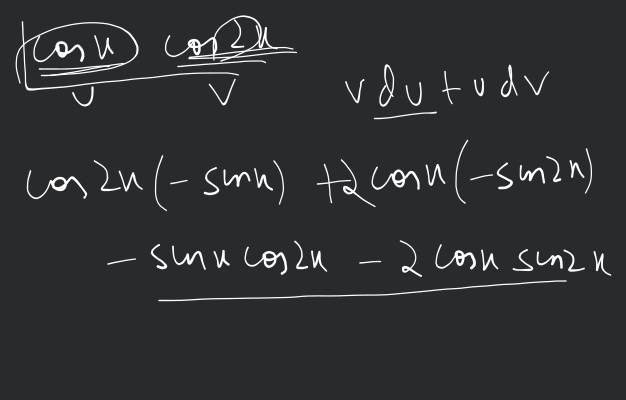 cos x cos 2x
U V
v du + u dv
cos 2x (- sin x) + 2 cos x (- sin 2x)
- sin x cos 2x - 2 cos x sin 2x